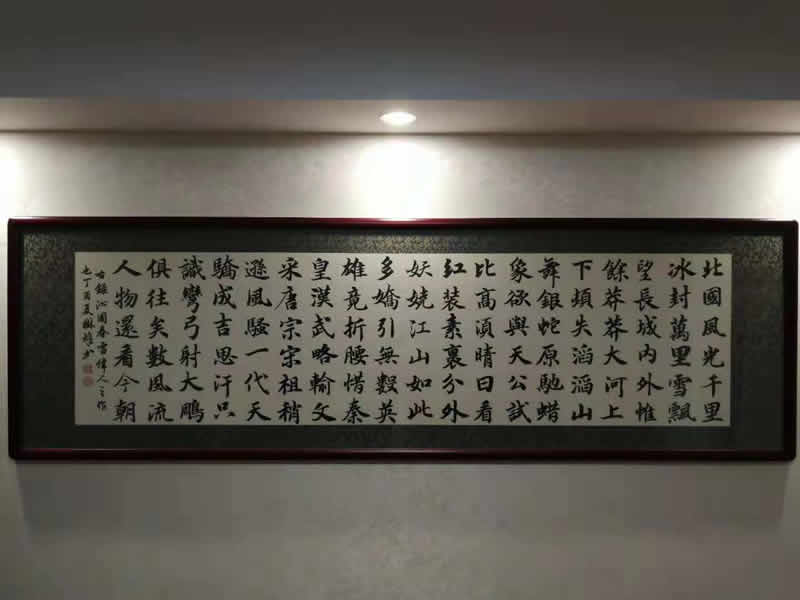 北國風光千里
冰封萬里雪飄
望長城內外惟
餘莽莽大河上
下頓失滔滔山
舞銀蛇原馳蜡
象欲與天公試
比高須晴日看
紅裝素裹分外
妖嬈江山如此
多嬌引無數英
雄竟折腰惜秦
皇漢武略輸文
采唐宗宋祖稍
遜風騷一代天
驕成吉思汗只
識彎弓射大鵰
俱往矣數風流
人物還看今朝
右錄沁園春雪偉人之作
也丁酉夏